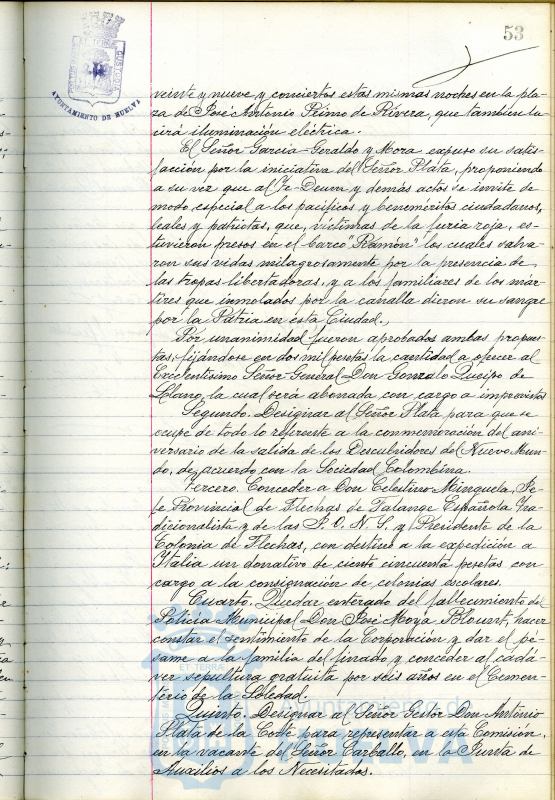 53
AYUNTAMIENTO DE HUELVA
veinte y nueve y conciertos estas mismas noches en la pla-
za de José Antonio Primo de Rivera, que tambien lu-
cirá iluminación eléctrica.
El Señor García-Geraldo y Mora expuso su satis-
facción por la iniciativa del Señor Plata, proponiendo
a su vez que al Te-Deum y demás actos se invite de
modo especial a los pacíficos y beneméritos ciudadanos,
leales y patriotas, que, víctimas de la furia roja, es-
tuvieron presos en el barco "Ramón" los cuales salva-
ron sus vidas milagrosamente por la presencia de
las tropas libertadoras, y a los familiares de los már-
tires que inmolados por la canalla dieron su sangre
por la Patria en esta Ciudad.
Por unanimidad fueron aprobados ambas propues-
tas, fijándose en dos mil pesetas la cantidad a ofrecer al
Excelentísimo Señor General Don Gonzalo Queipo de
Llano, la cual será abonada con cargo a imprevistos
Segundo. Designar al Señor Plata para que se
ocupe de todo lo referente a la conmemoración del ani-
versario de la salida de los Descubridores del Nuevo Mun-
do, de acuerdo con la Sociedad Colombina.
Tercero. Conceder a Don Celestino Minguela, Je-
fe Provincial de Flechas de Falange Española Tra-
dicionalista y de las J. O. N. S. y Presidente de la
Colonia de Flechas, con destino a la expedición a
Italia un donativo de ciento cincuenta pesetas con
cargo a la consignación de colonias escolares.
Cuarto. Quedar enterado del fallecimiento del
Policía Municipal Don José Moya Blount, hacer
constar el sentimiento de la Corporación y dar el pé-
same a la familia del finado y conceder al cadá-
ver sepultura gratuita por seis años en el Cemen-
terio de la Soledad.
Quinto. Designar al Señor Gestor Don Antonio
Plata de la Corte para representar a esta Comisión,
en la vacante del Señor Carballo, en la Junta de
Auxilios a los Necesitados.